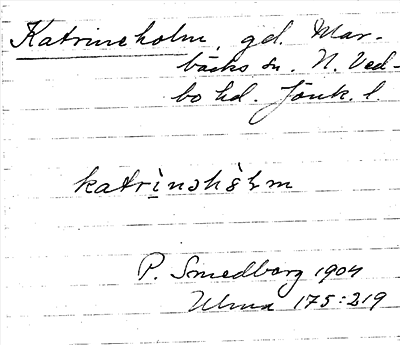 Katrineholm, gd. Mar-
bäcks sn. N. Ved-
bo hd. Jönk. l.
katrìnəhòlm
P. Smedborg 1904
Ulma 175:219